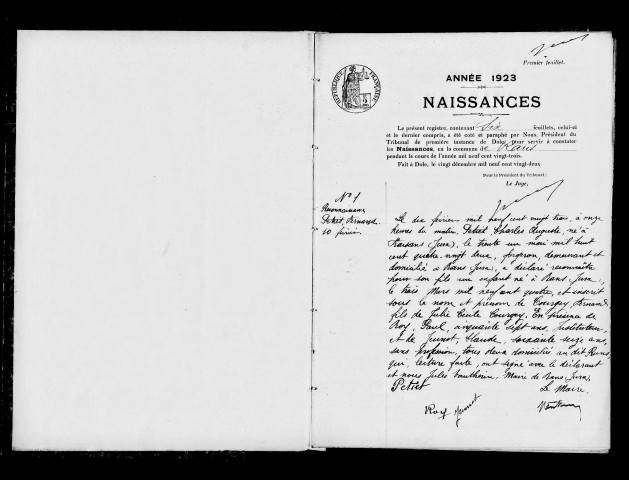 Premier feuillet.
RÉPUBLIQUE FRANÇAISE
ANNÉE 1923
NAISSANCES
Le présent registre, contenant six feuillets, celui-ci
et le dernier compris, a été coté et paraphé par Nous, Président du
Tribunal de première instance de Dole, pour servir à constater
les Naissances, en la commune de Rans
pendant le cours de l'année mil neuf cent vingt-trois.
Fait à Dole, le vingt décembre mil neuf cent vingt-deux
Pour le Président du Tribunal :
Le Juge,
No 1
Reconnaissance
Petit, Bernard
10 février
Le dix février mil neuf cent vingt trois, à onze
heures du matin, Charles Auguste, né à
(Jura), le trente un mai mil huit
cent quatre vingt deux, forgeron, demeurant et
domicilié à Rans (Jura), a déclaré reconnaître
pour son fils un enfant né à Rans, Jura,
le trois Mars mil neuf cent quatre, et inscrit
sous le nom et prénom de Courgey, Bernard
fils de Julie Cécile Courgey. En présence de
Roy, Paul, cinquante sept ans, Instituteur,
et de Jeunot, Claude, soixante seize ans,
sans profession, tous deux domiciliés au dit Rans,
qui, lecture faite, ont signé avec le déclarant
et nous Jules Vauthier, Maire de Rans, Jura,
Le Maire,
Roy Jeunot